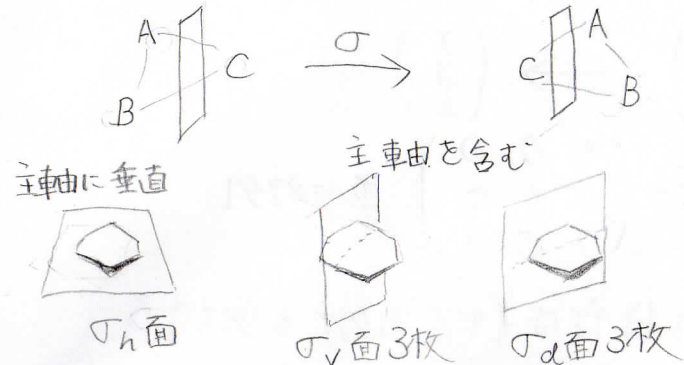 A
B
C
σ
A
C
B
主軸に垂直
主軸を含む
σh面
σv面3枚
σd面3枚